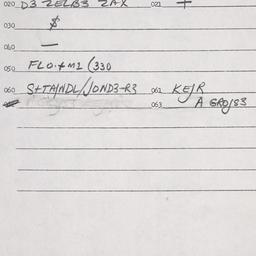 020 D3 2ELB3 2AX 021 +
030 $
040 —
050 FLO.+M1 (330
060 S+TAJNDL/JOND3-R3 061 KEJR
063 A GROJS3